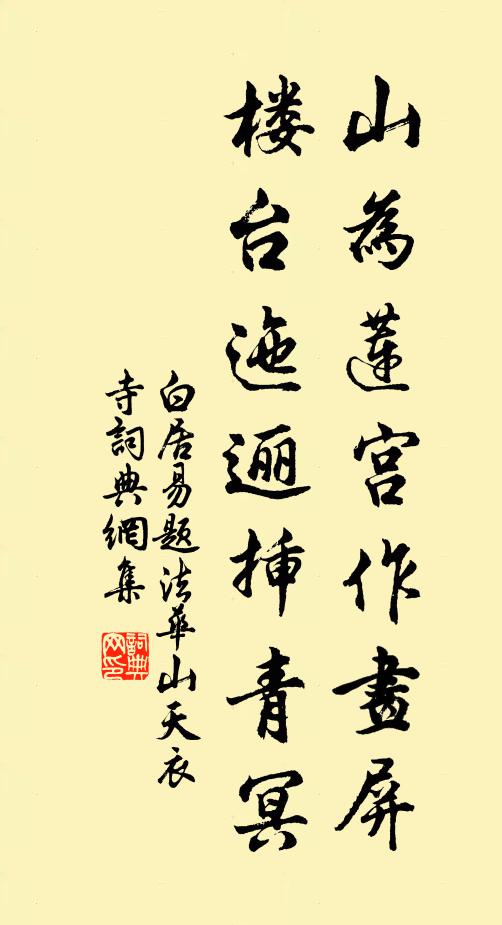 山為蓮宮作畫屏
楼台迤逦挿青冥
白居易题法華山天衣
寺詞典網集
詞典网印